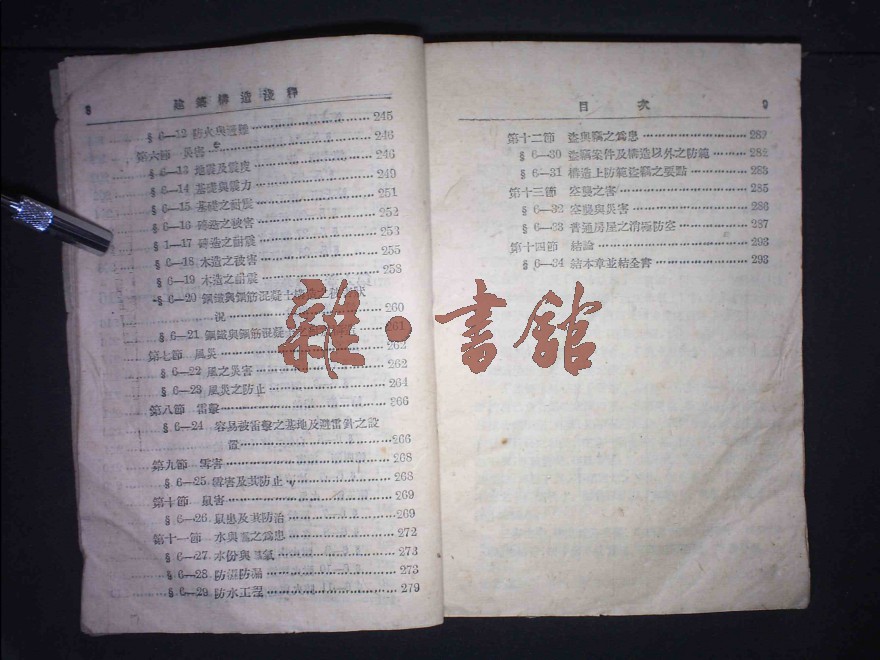 8 建築構造淺釋
§ 6—12 防火與避難 245
第六節 災害 246
§ 6—13 地震及震度 246
§ 6—14 基礎與震力 249
§ 6—15 基礎之耐震 251
§ 6—16 磚造之被害 252
§ 1—17 磚造之耐震 253
§ 6—18 木造之被害 255
§ 6—19 木造之耐震 258
§ 6—20 鋼鐵與鋼筋混凝土
況 260
§ 6—21 鋼鐵與鋼筋混凝 261
第七節 風災 262
§ 6—22 風之災害 262
§ 6—23 風災之防止 264
第八節 雷擊 266
§ 6—24 容易被雷擊之基地及避雷針之設
置 266
第九節 雪害 268
§ 6—25 雪害及其防止 268
第十節 鼠害 269
§ 6—26 鼠患及其防治 269
第十一節 水與濕之爲患 272
§ 6—27 水份與濕氣 273
§ 6—28 防濕防漏 273
§ 6—29 防水工程 279
目次 9
第十二節 盜與竊之爲患 282
§ 6—30 盜竊案件及構造以外之防範 282
§ 6—31 構造上防範盜竊之要點 283
第十三節 空襲之害 285
§ 6—32 空襲與災害 286
§ 6—33 普通房屋之消極防空 287
第十四節 結論 293
§ 6—34 結本章並結全書 293
雜·書館